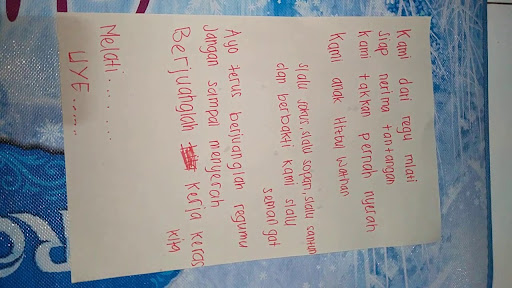 Kami dari regu mlati
siap nerima tantangan
kami takkan pernah nyerah
Kami anak Hizbul wathan
slalu sukus, slalu sopan, slalu santun
dan berbakti kami slalu
semangat
Ayo terus berjuanglah regumu
Jangan sampai menyerah
Berjuanglah kerja keras
kita
Melati.......
UYE.....